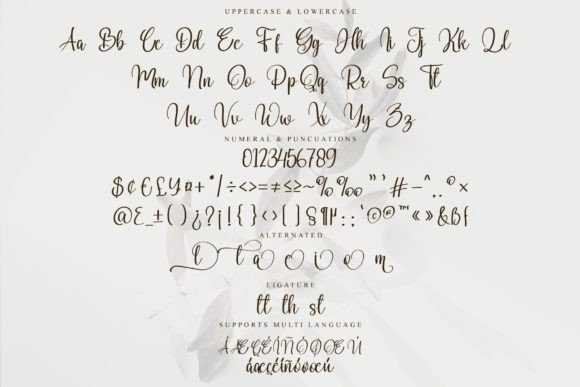 UPPERCASE & LOWERCASE
Aa Bb Cc Dd Ee Ff Gg Hh Ii Jj Kk Ll
Mm Nn Oo Pp Qq Rr Ss Tt
Uu Vv Ww Xx Yy Zz
NUMERAL & PUNCUATIONS
0123456789
$¢€£¥¤+*/÷<>=≠≤≥~%‰"'#-^..°×
@&_±()¿?¡!{}‹›[]§¶:;©®™«»&ßf
ALTERNATED
l t a c i o m
LIGATURE
tt th st
SUPPORTS MULTI LANGUAGE
ÁÆÇÉÍÑÓØŒÚ
áæçéíñóøœú